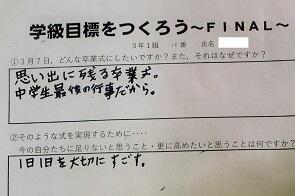 学級目標をつくろう～FINAL～
3年1組 番 氏名
①3月7日、どんな卒業式にしたいですか?また、それはなぜですか?
思い出に残る卒業式。
中学生最後の行事だから。
②そのような式を実現するために････
今の自分たちに足りないと思うこと・更に高めたいと思うことは何ですか?
1日1日を大切にすごす。